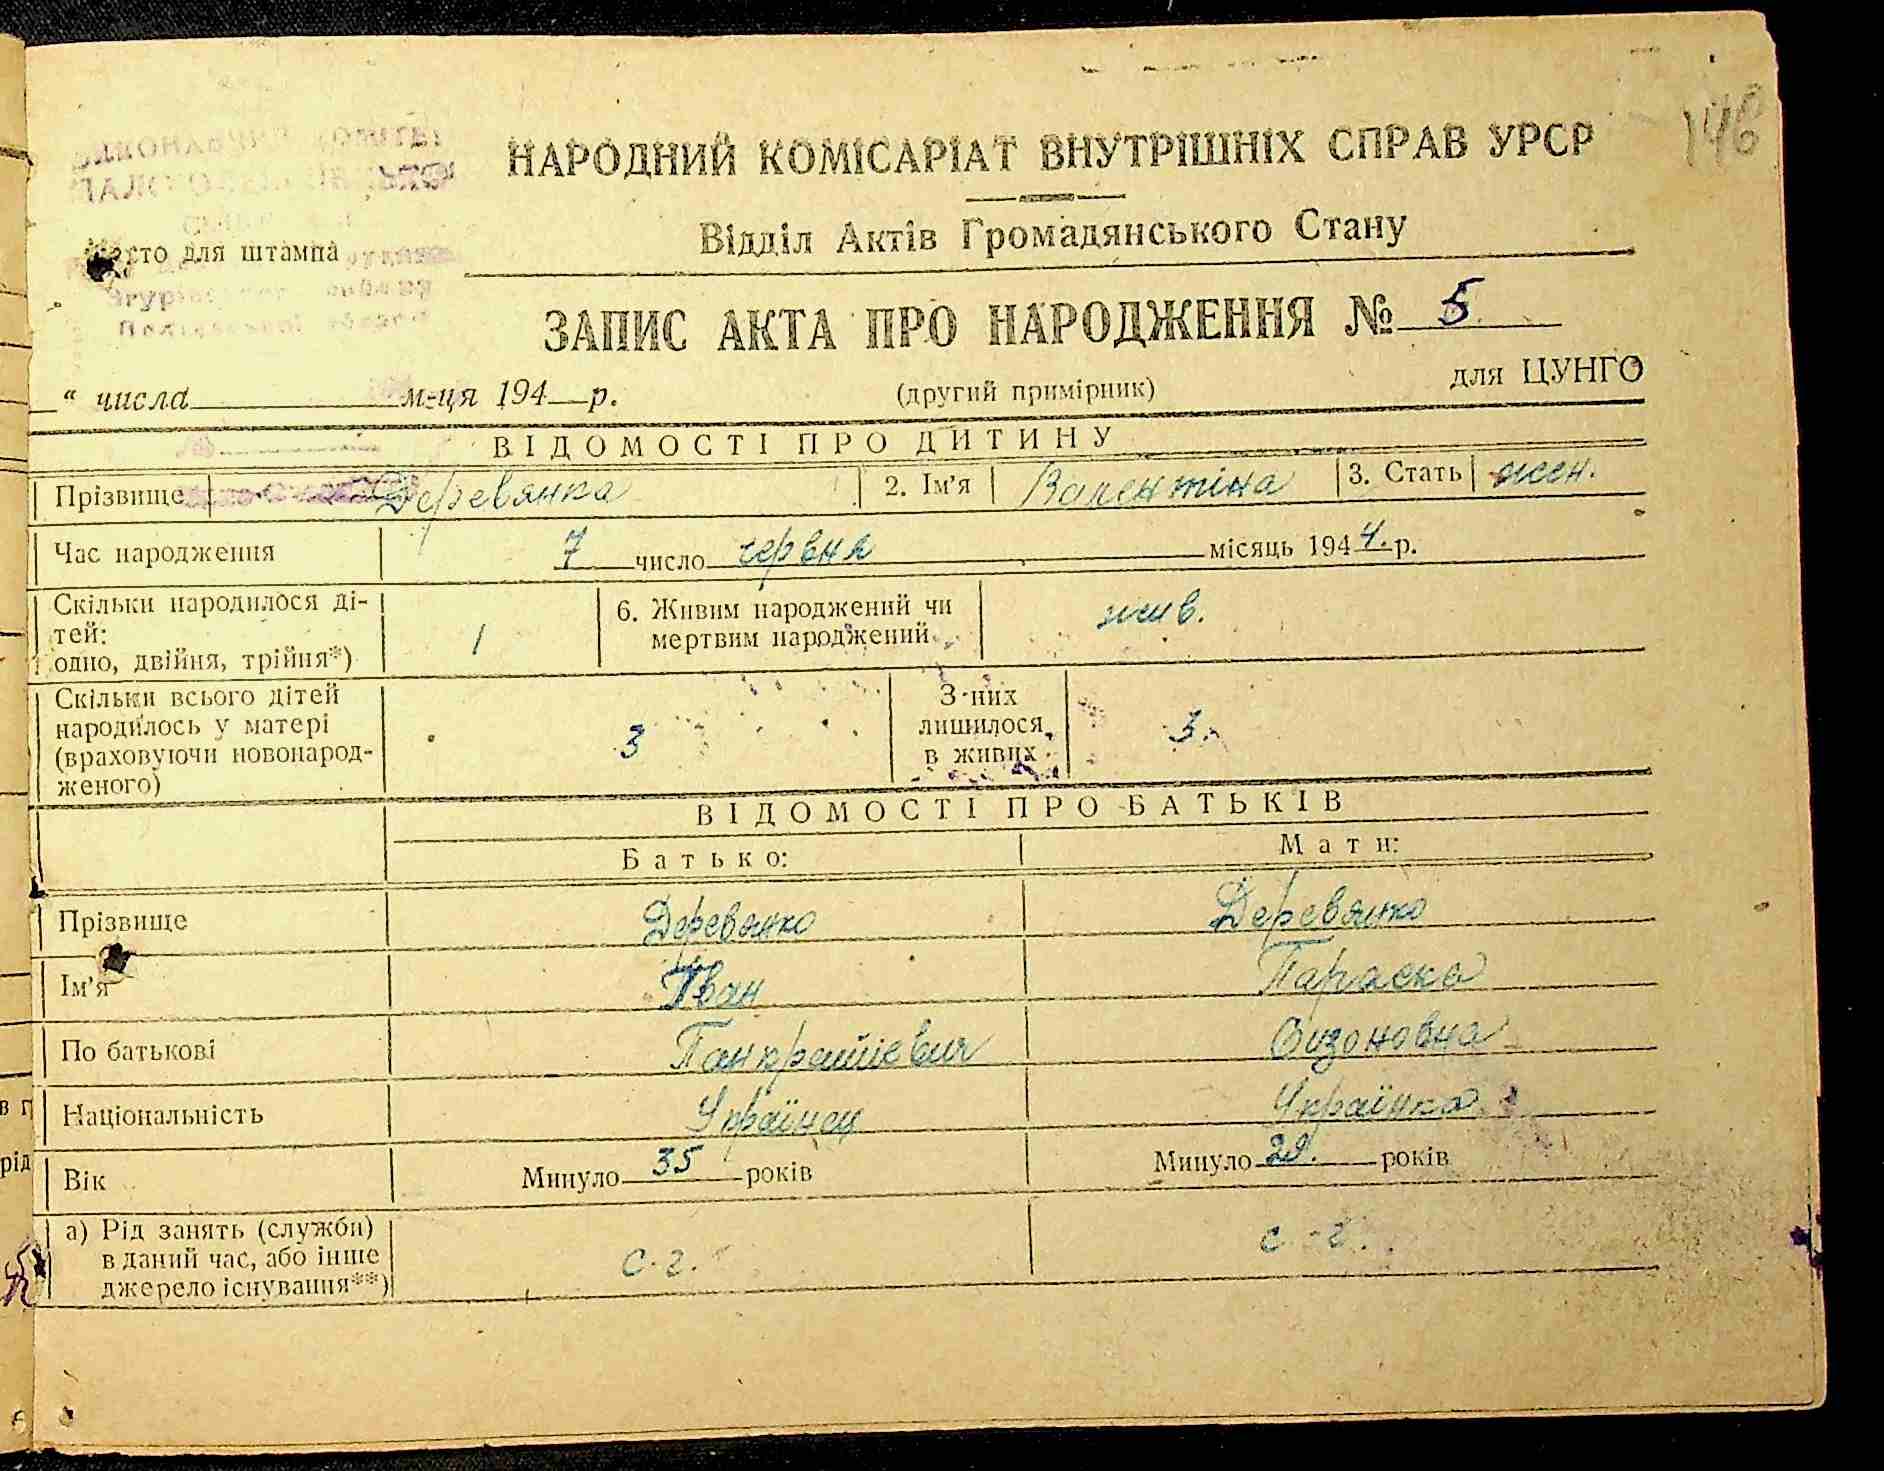 146
НАРОДНИЙ КОМІСАРІАТ ВНУТРІШНІХ СПРАВ УРСР
Відділ Актів Громадянського Стану
Место для штампа
ЗАПИС АКТА ПРО НАРОДЖЕННЯ № 5
для ЦУНГО
“ числа м-ця 194 р. (другий примірник)
ВІДОМОСТІ ПРО ДИТИНУ
Прізвище Деревянка 2. Ім'я Валентіна 3. Стать жен.
Час народження 7 число червня місяць 1944. р.
Скільки народилося ді-
тей:
одно, двійня, трійня*) 1
6. Живим народжений чи
мертвим народжений жив.
Скільки всього дітей
народилось у матері
(враховуючи новонарод-
женого) 3
З них
лишилося
в живих 3.
ВІДОМОСТІ ПРО БАТЬКІВ
Батько: Мати:
Прізвище Деревянко Деревянко
Ім'я Іван Параска
По батькові Панкратієвич Сизоновна
Національність Українец Українка
Вік Минуло 35 років Минуло 29. років
а) Рід занять (служби)
в даний час, або інше
джерело існування**) с.г. с-г.